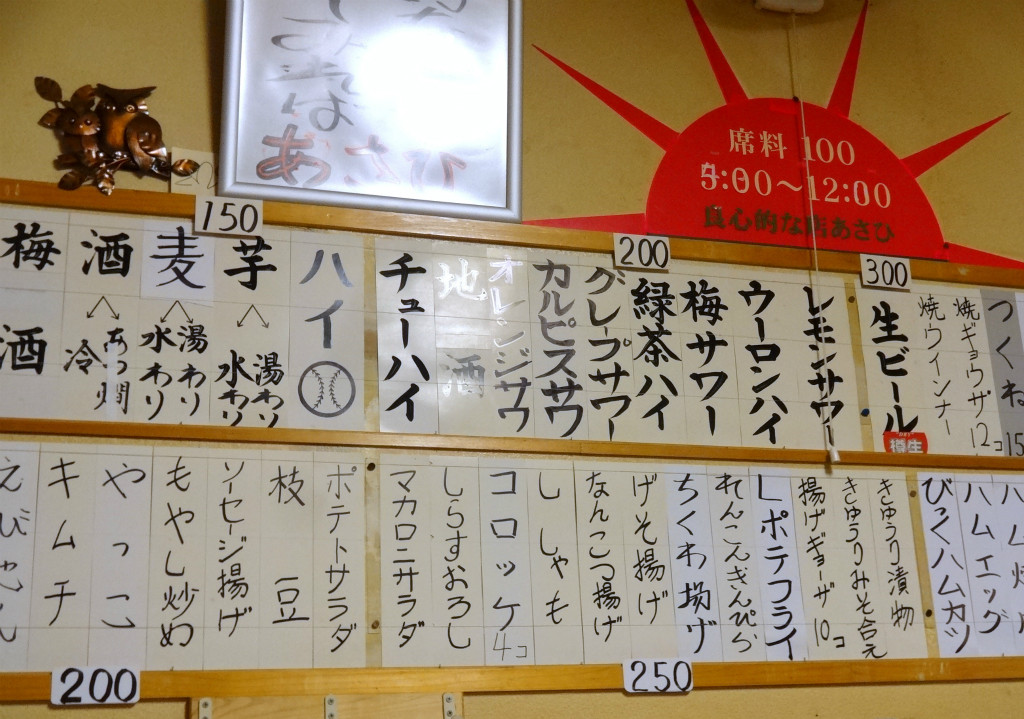 あさひ
席料 100
5:00～12:00
良心的な店あさひ
150
200
300
つくね
焼ギョウザ 12コ
焼ウインナー
生ビール
樽生
レモンサワー
ウーロンハイ
梅サワー
緑茶ハイ
グレープサワー
カルピスサワ
オレンジサワ
地酒
チューハイ
ハイ
芋 湯わり 水わり
麦 湯わり 水わり
酒 あつ燗 冷
梅酒
ハムエッグ
びっくハムカツ
きゅうり漬物
きゅうりみそ合え
揚げギョーザ 10コ
Lポテフライ
れんこんきんぴら
ちくわ揚げ
げそ揚げ
なんこつ揚げ
ししゃも
コロッケ 4コ
しらすおろし
マカロニサラダ
ポテトサラダ
枝豆
ソーセージ揚げ
もやし炒め
やっこ
キムチ
200
250